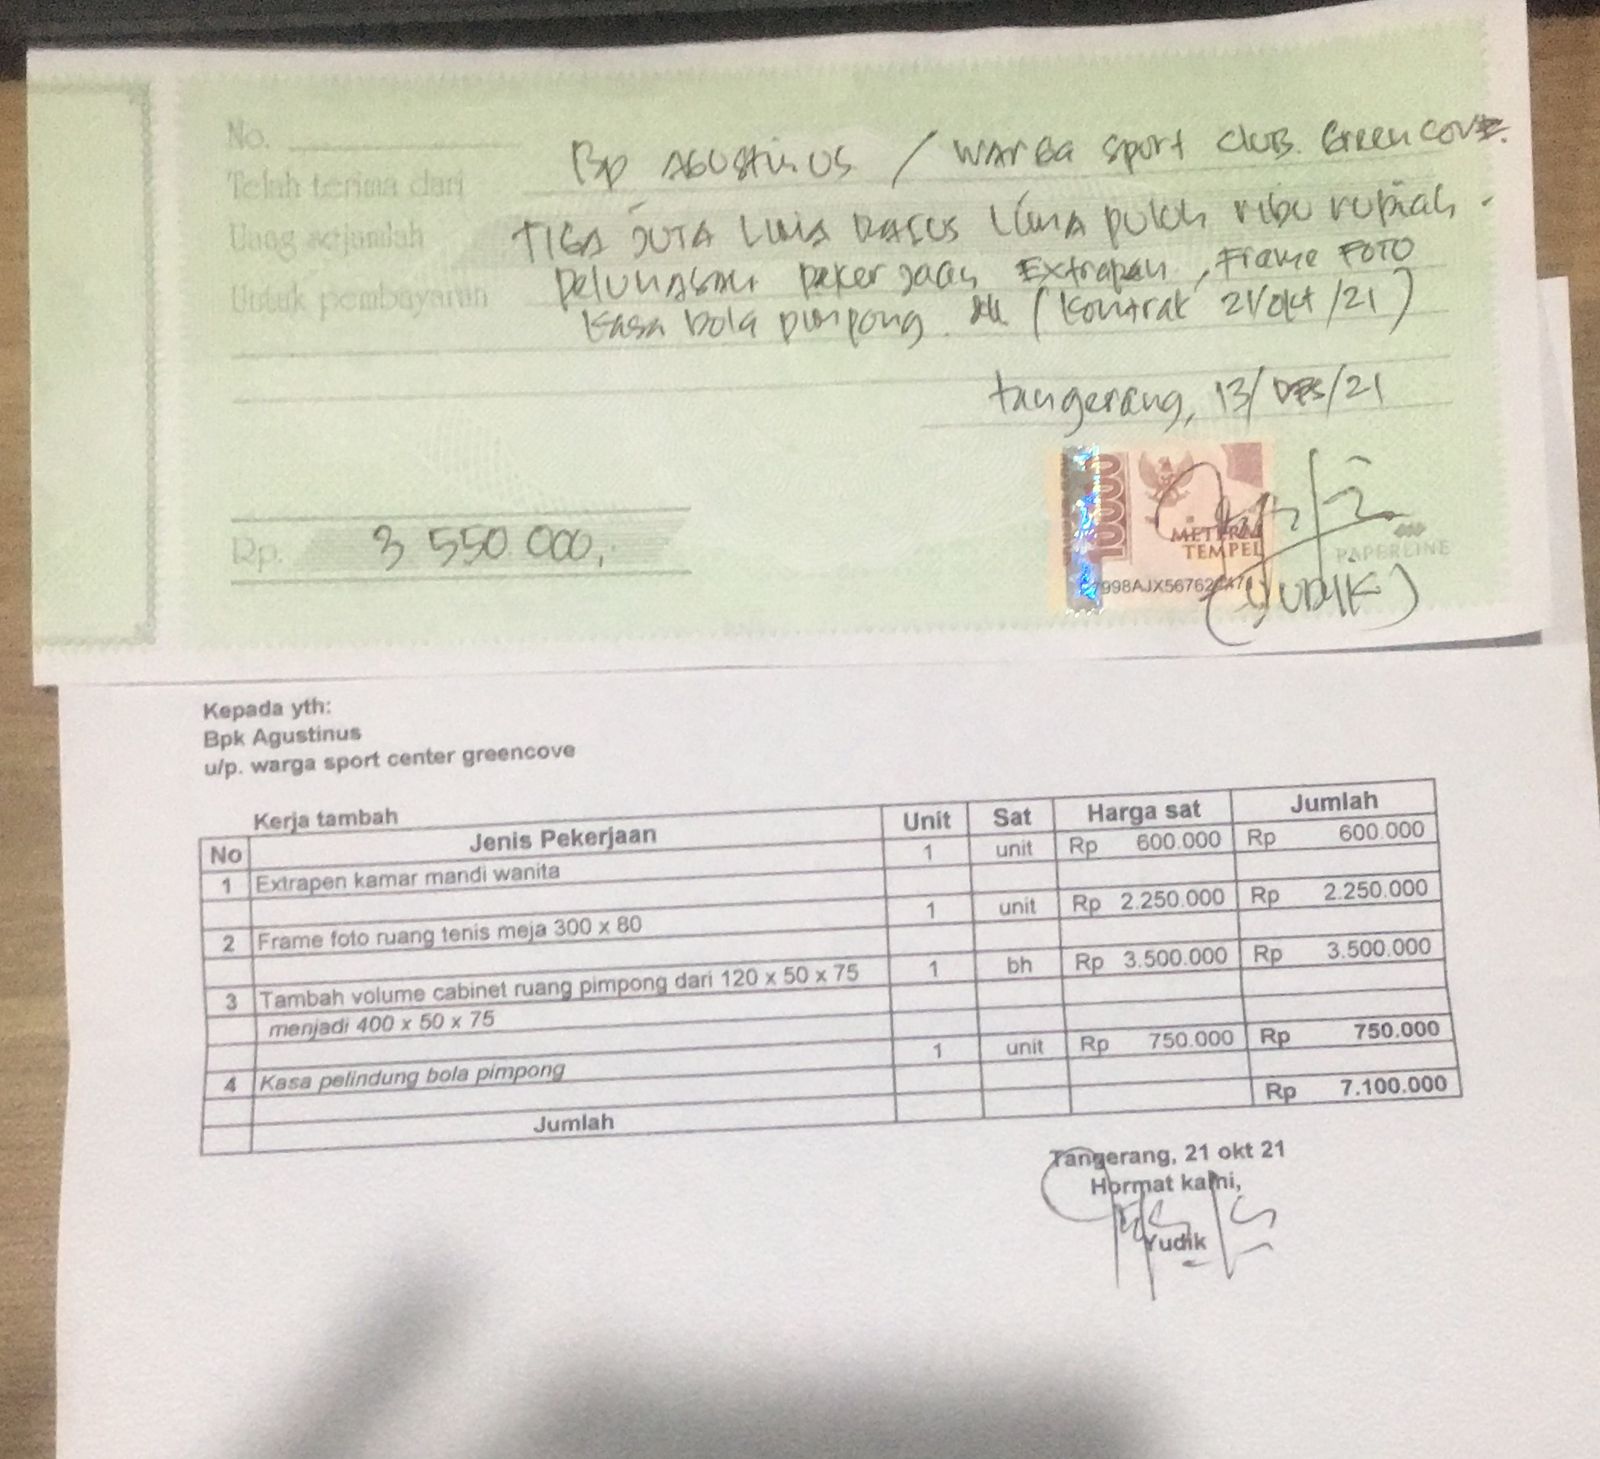 No.
Telah terima dari Bp AGUSTINUS / WARGA Sport CLUB. GREENCOVE.
Uang sejumlah TIGA JUTA LIMA RATUS LIMA puluh ribu rupiah.
Untuk pembayaran Pelunasan pekerjaan Extrapen, Frame FOTO
Kasa bola pimpong. (Kontrak 21/okt/21)
tangerang, 13/DES/21
Rp. 3 550 000,-
10000
METERAI
TEMPEL
PAPERLINE
(YUDIK)
Kepada yth:
Bpk Agustinus
u/p. warga sport center greencove
Kerja tambah
No Jenis Pekerjaan Unit Sat Harga sat Jumlah
1 Extrapen kamar mandi wanita 1 unit Rp 600.000 Rp 600.000
2 Frame foto ruang tenis meja 300 x 80 1 unit Rp 2.250.000 Rp 2.250.000
3 Tambah volume cabinet ruang pimpong dari 120 x 50 x 75 1 bh Rp 3.500.000 Rp 3.500.000
menjadi 400 x 50 x 75
4 Kasa pelindung bola pimpong 1 unit Rp 750.000 Rp 750.000
Jumlah Rp 7.100.000
Tangerang, 21 okt 21
Hormat kami,
Yudik